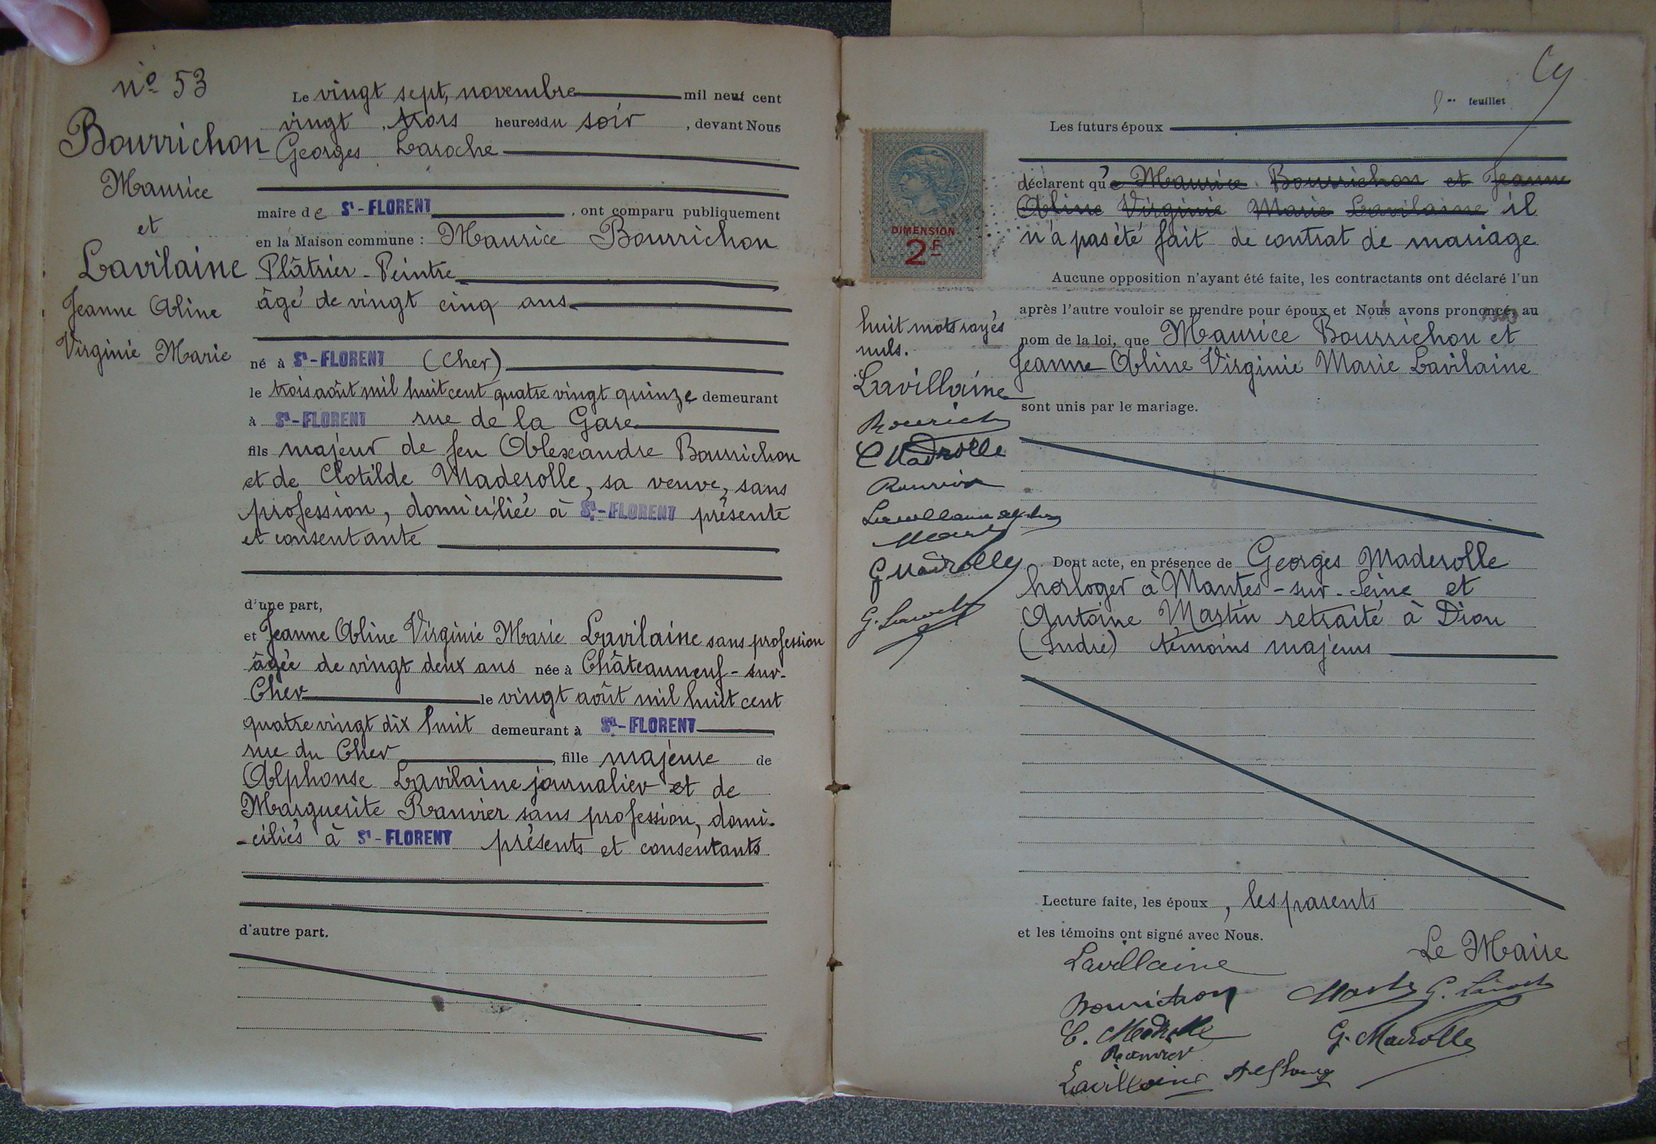 n° 53
Bourrichon
Maurice
et
Lavilaine
Jeanne Aline
Virginie Marie
Le vingt sept, novembre mil neuf cent
vingt, trois heures du soir, devant Nous
Georges Laroche
maire de St-FLORENT, ont comparu publiquement
en la Maison commune : Maurice Bourrichon
Plâtrier-Peintre
âgé de vingt cinq ans
né à St-FLORENT (Cher)
le trois août mil huit cent quatre vingt quinze demeurant
à St-FLORENT rue de la Gare
fils majeur de feu Alexandre Bourrichon
et de Clotilde Maderolle, sa veuve, sans
profession, domiciliée à St-FLORENT présente
et consentante
d'une part,
et Jeanne Aline Virginie Marie Lavilaine sans profession
âgée de vingt deux ans née à Châteauneuf-sur-
Cher le vingt août mil huit cent
quatre vingt dix huit demeurant à St-FLORENT
rue du Cher, fille majeure de
Alphonse Lavilaine journalier et de
Marguerite Ranvier sans profession, domi-
-ciliés à St-FLORENT présents et consentants
d'autre part.
feuillet
Les futurs époux
déclarent qu'e Maurice Bourrichon et Jeanne
Aline Virginie Marie Lavilaine il
n'a pas été fait de contrat de mariage
DIMENSION
2F
Aucune opposition n'ayant été faite, les contractants ont déclaré l'un
après l'autre vouloir se prendre pour époux et Nous avons prononcé, au
nom de la loi, que Maurice Bourrichon et
Jeanne Aline Virginie Marie Lavilaine
sont unis par le mariage.
huit mots rayés
nuls.
Lavillaine
C Madrolle
G Madrolle
Dont acte, en présence de Georges Maderolle
horloger à Mantes-sur-Seine et
Antoine Martin retraité à Dion
(Indre) témoins majeurs
Lecture faite, les époux, les parents
et les témoins ont signé avec Nous.
Le Maire
Lavillaine
Bourrichon
C. Madrolle
Ranvier
G. Madrolle
Lavillaine Alphonse